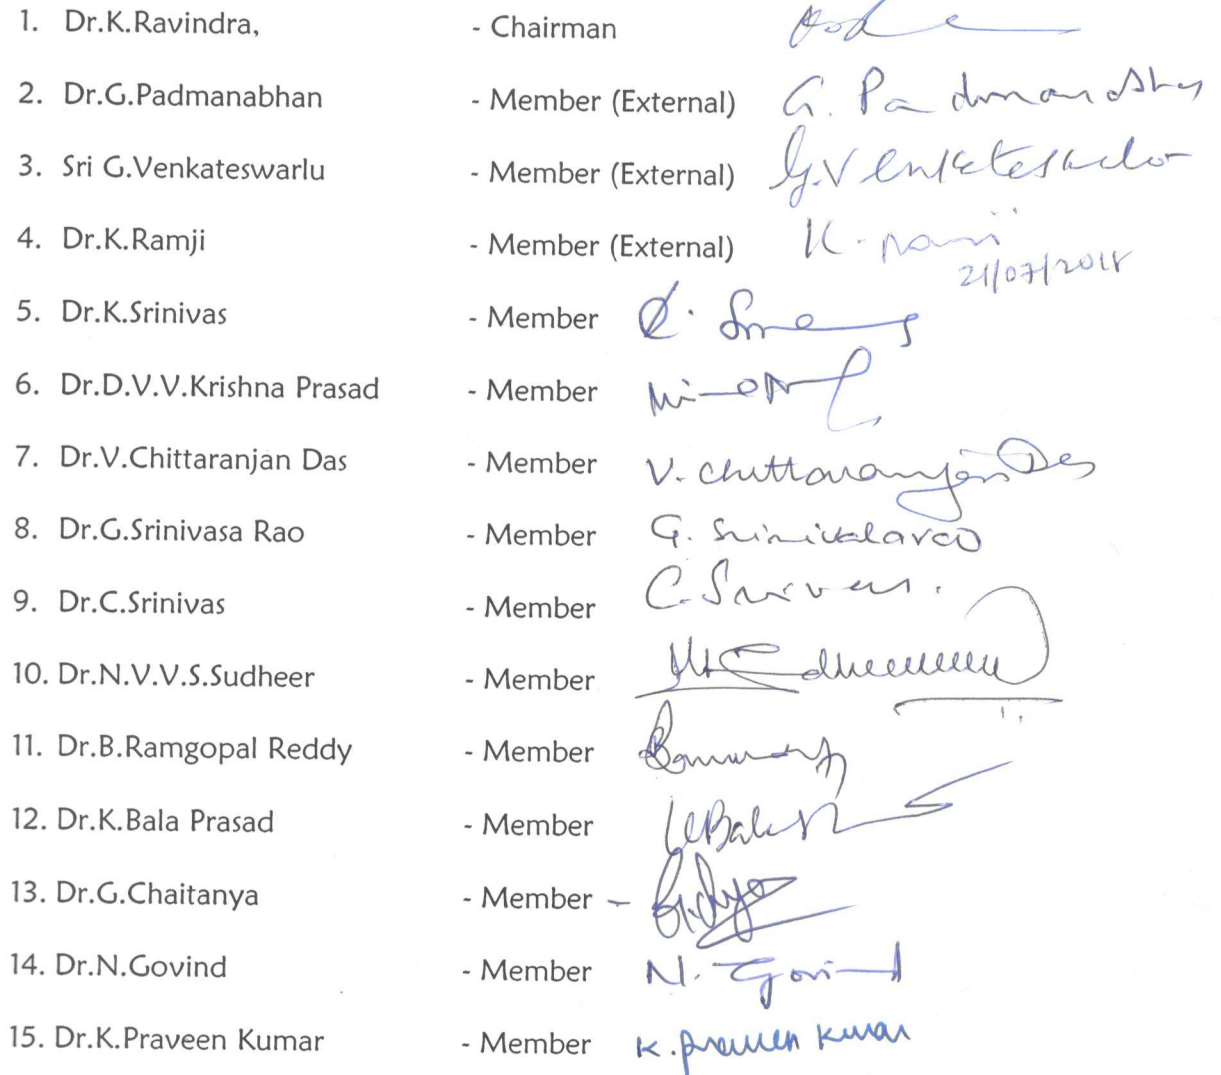 1. Dr.K.Ravindra, - Chairman
2. Dr.G.Padmanabhan - Member (External) G. Padmanabhan
3. Sri G.Venkateswarlu - Member (External) G.Venkateswarlu
4. Dr.K.Ramji - Member (External) K. Ramji
21/07/2018
5. Dr.K.Srinivas - Member
6. Dr.D.V.V.Krishna Prasad - Member
7. Dr.V.Chittaranjan Das - Member V. Chittaranjan Das
8. Dr.G.Srinivasa Rao - Member G. Srinivasarao
9. Dr.C.Srinivas - Member C.Srinivas.
10. Dr.N.V.V.S.Sudheer - Member
11. Dr.B.Ramgopal Reddy - Member
12. Dr.K.Bala Prasad - Member
13. Dr.G.Chaitanya - Member -
14. Dr.N.Govind - Member N. Govind
15. Dr.K.Praveen Kumar - Member K. Praveen Kumar